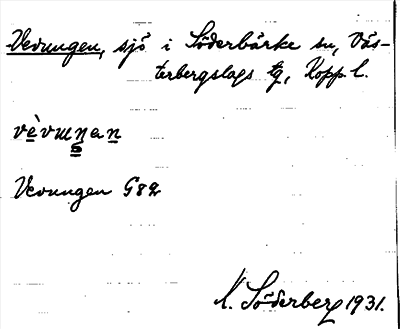 Vevungen, sjö i Söderbärke sn, Väs-
terbergslags tg, Kopp. l.
Vevungen G82
K. Söderberg 1931.